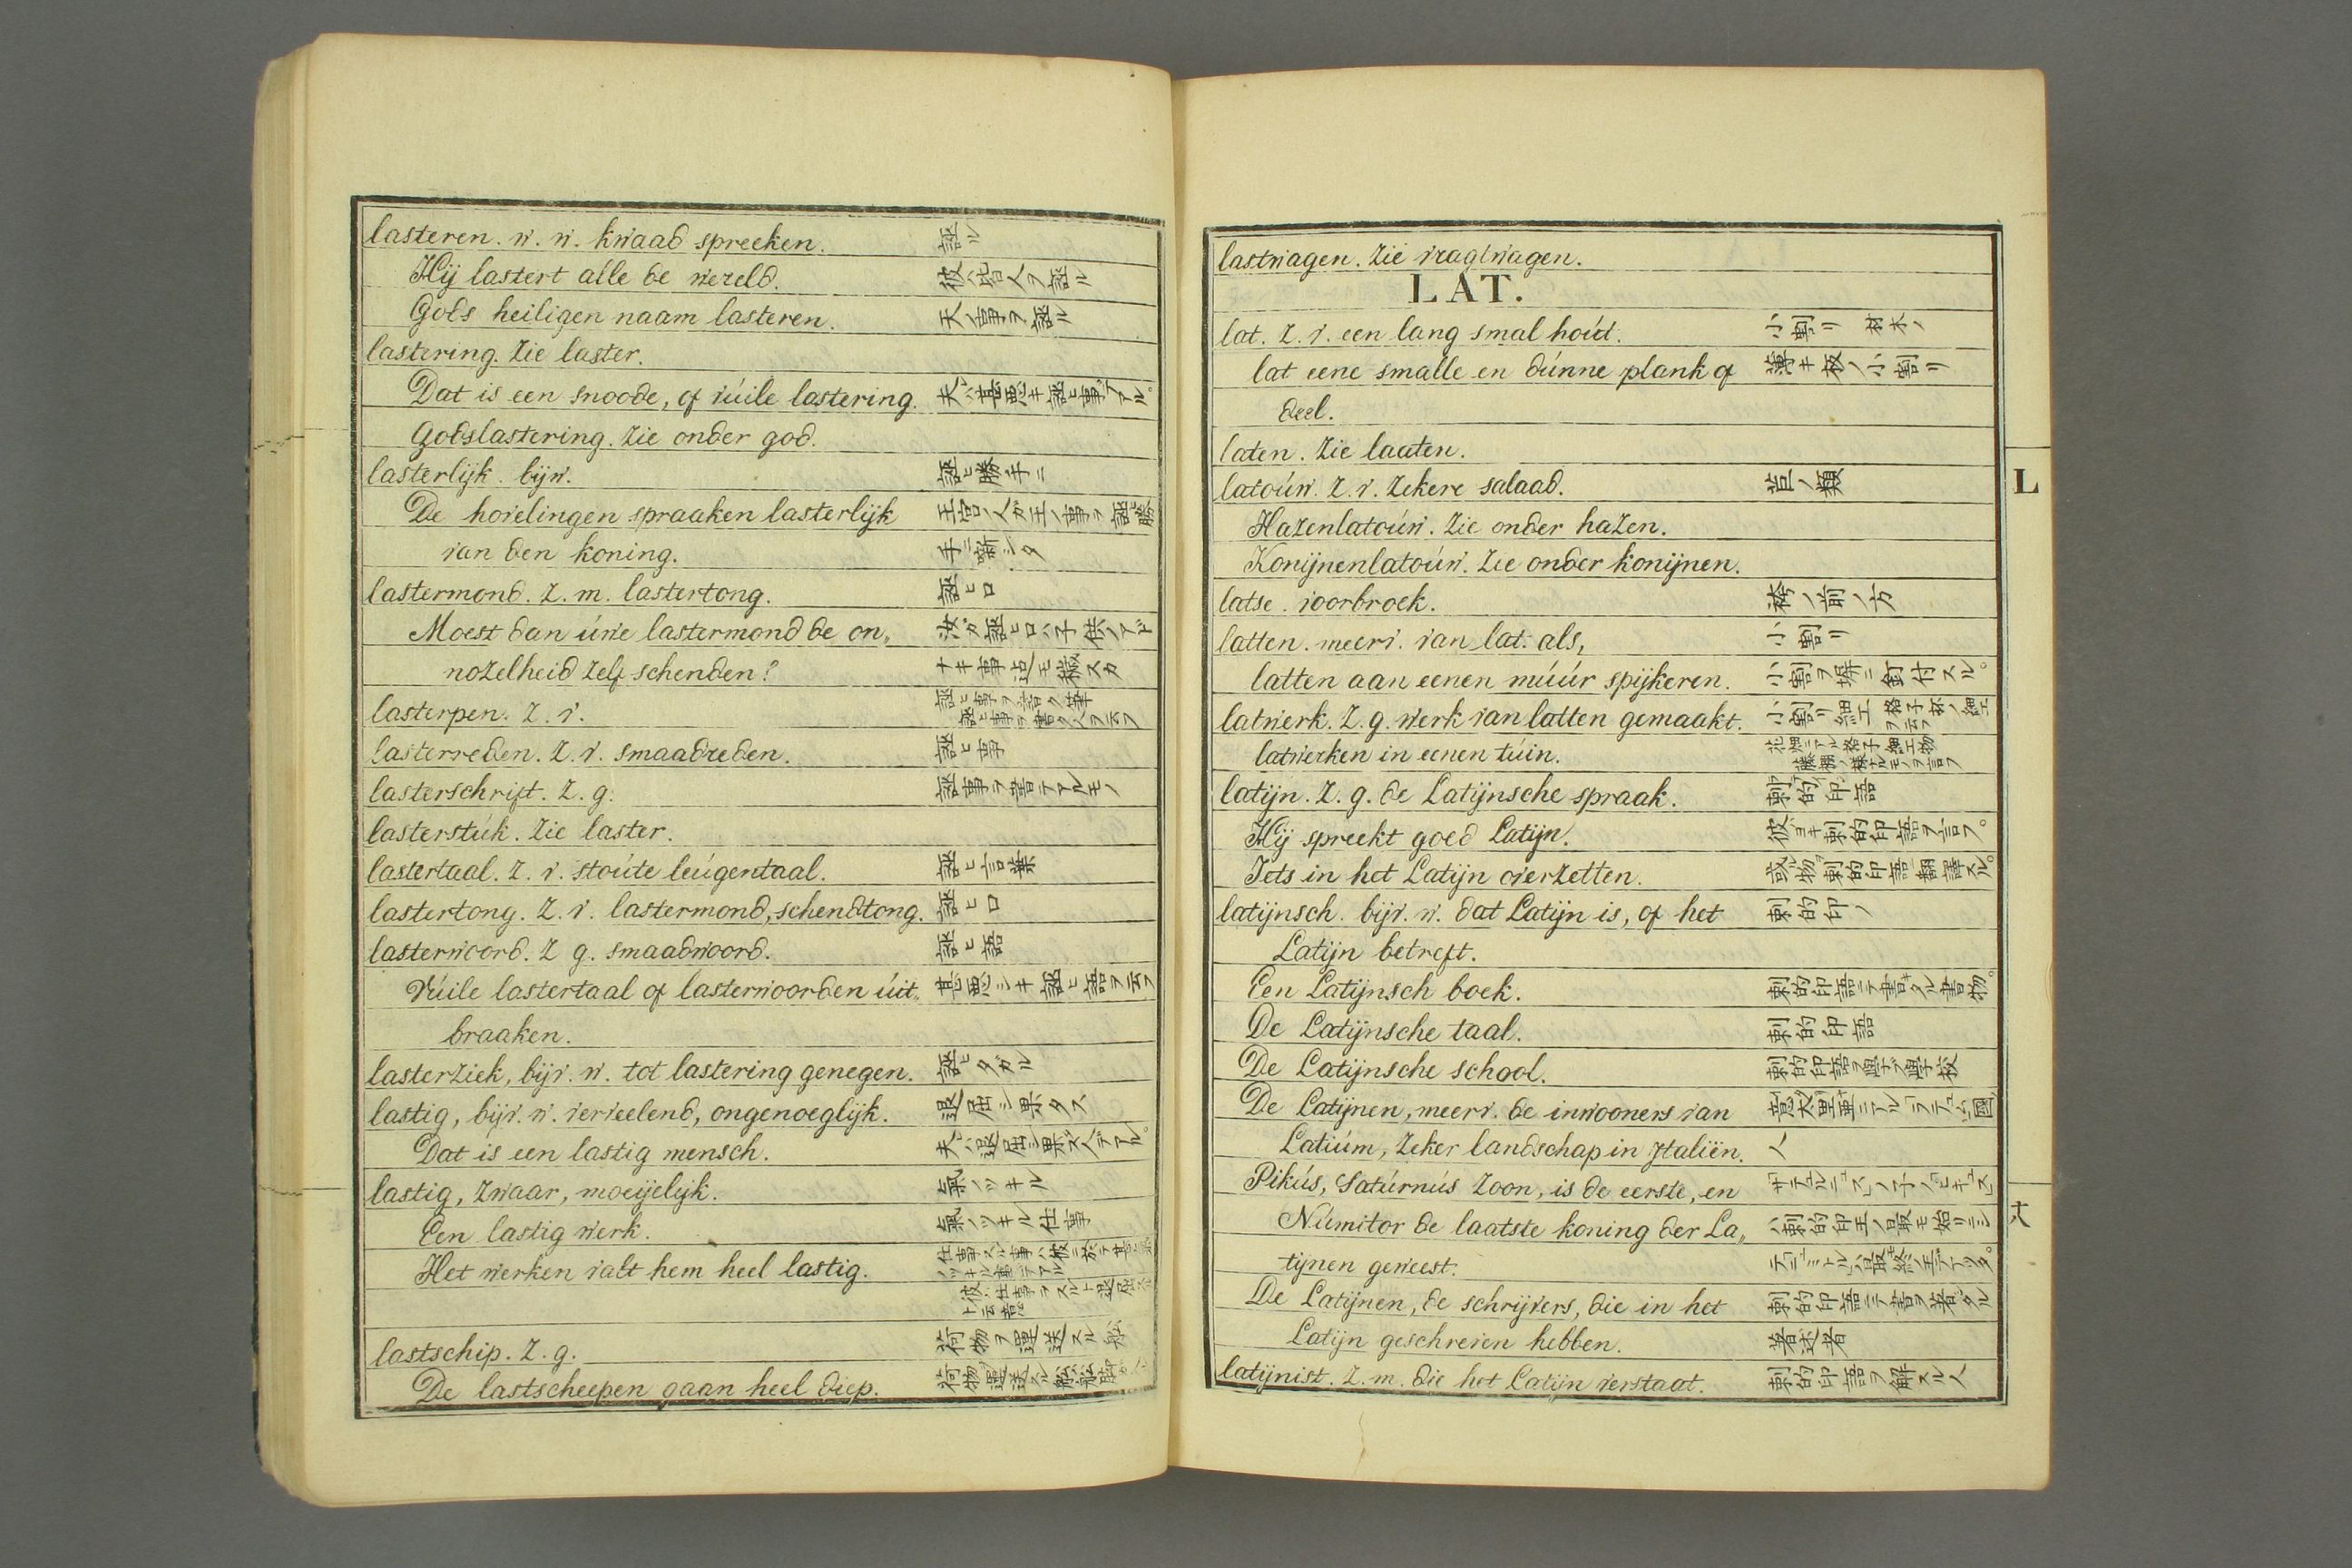 lasteren. w. w. kwaad spreeken. 誣ル
Hij lastert alle de wereld. 彼ハ皆人ヲ誣ル
Gods heiligen naam lasteren. 天ノ事ヲ誣ル
lastering. Zie laster.
Dat is een snoode, of vúile lastering. 夫ハ甚悪キ誣ヒ事デアル。
Godslastering. Zie onder god.
lasterlijk. bijw. 誣ヒ勝手ニ
De hovelingen spraaken lasterlijk 王宮ノ人ガ王ノ事ヲ誣ヒ勝
van den koning. 手ニ噺シタ
lastermond. Z. m. lastertong. 誣ヒ口
Moest dan úwe lastermond de on„ 汝ガ誣ヒ口ハ子供ノアド
nozelheid zelf schenden? ナキ事迠モ穢スカ
lasterpen. Z. v. 誣ヒ事ヲ書ク筆
誣ヒ事ヲ書ク人ヲ云フ
lasterreden. Z. v. smaadreden. 誣ヒ事
lasterschrift. Z. g. 誣事ヲ書テアルモノ
lasterstúk. Zie laster.
lastertaal. Z. v. stoúte leúgentaal. 誣ヒ言葉
lastertong. Z. v. lastermond, schendtong. 誣ヒ口
lasterwoord. Z g. smaadwoord. 誣ヒ語
Vúile lastertaal of lasterwoorden úit„ 甚悪シキ誣ヒ語ヲ云フ
braaken.
lasterziek, bijv. w. tot lastering genegen. 誣ヒタガル
lastig, bijv. w. verveelend, ongenoeglijk. 退屈シ果タス
Dat is een lastig mensch. 夫ハ退屈シ果ス人デアル。
lastig, zwaar, moeijelijk. 氣ノツキル
Een lastig werk. 氣ノツキル仕事
Het werken valt hem heel lastig. 仕事スル事ハ彼ニ於テ甚氣
ノツキル事デアル
彼ハ仕事ヲスルト退屈スル
ト云意
lastschip. Z. g. 荷物ヲ運送スル舩
De lastscheepen gaan heel diep.
lastwagen. Zie vragtwagen.
LAT.
lat. Z. v. een lang smal hoút. 小割リ 材木ノ
lat eene smalle en dúnne plank of 薄キ板ノ小割リ
deel.
laten. Zie laaten.
latoúw. Z. v. Zekere salaad. 苣ノ類
Hazenlatoúw. Zie onder hazen.
Konijnenlatoúw. Zie onder konijnen.
latse. voorbroek. 袴ノ前ノ方
latten. meerv. van lat. als, 小割リ
latten aan eenen múúr spijkeren. 小割ヲ塀ニ釘付スル。
latwerk. Z. g. werk van latten gemaakt. 小割リ細工 格子杯ノ細工
ヲ云フ
latwerken in eenen túin. 花畑ニアル格子細工物
藤棚ノ様ナルモノヲ言フ
latijn. Z. g. de Latijnsche spraak. 剌的印語
Hij spreekt goed Latijn. 彼ハヨキ剌的印語ヲ言フ。
Iets in het Latijn overzetten. 或物ヲ剌的印語ニ翻譯スル。
latijnsch. bijv. w. dat Latijn is, of het 剌的印ノ
Latijn betreft.
Een Latijnsch boek. 剌的印語ニテ書キタル書物。
De Latijnsche taal. 剌的印語
De Latijnsche school. 剌的印語ヲ學ブ學校
De Latijnen, meerv. de inwooners van 意太里亜ニアルラテュム國ノ
Latiúm, zeker landschap in Italiën. 人
Pikús, Satúrnús Zoon, is de eerste, en サテュルニュスノ子ノピキュス
Númitor de laatste koning der La„ ハ剌的印王ノ最モ始リニシ
tijnen geweest. テニュミトルハ最モ終ノ王デアツタ。
De Latijnen, de schrijvers, die in het 剌的印語ニテ書ヲ著シタル
Latijn geschreven hebben. 著述者
latijnist. Z. m. die het Latijn verstaat. 剌的印語ヲ解スル人
L
十八